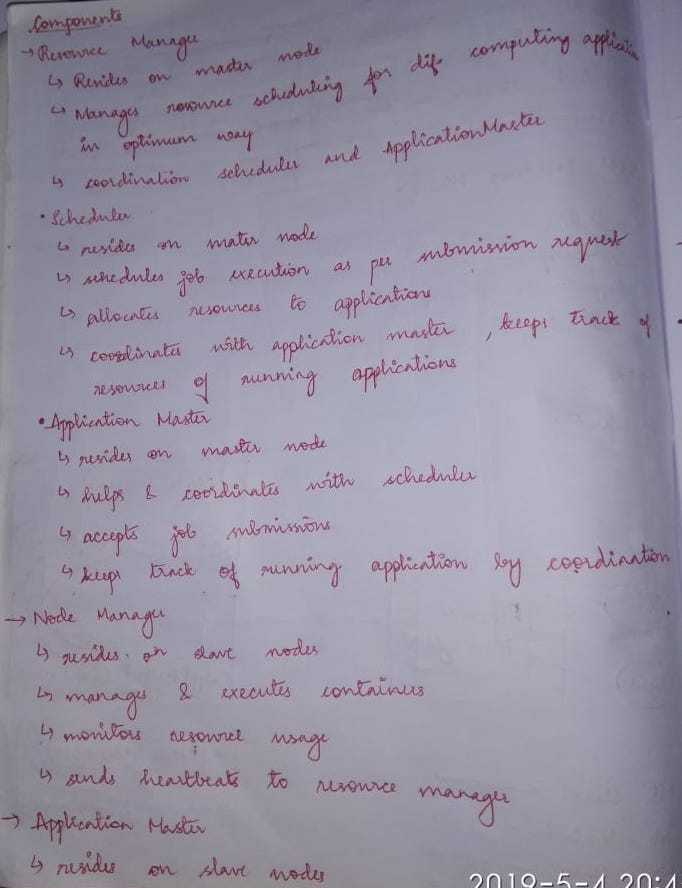 Components
→ Resource Manager
↳ Resides on master node
↳ Manages resource scheduling for dif. computing application
in optimum way
↳ coordination scheduler and ApplicationMaster
• Scheduler
↳ resides on mater node
↳ schedules job execution as per submission request
↳ allocates resources to applications
↳ coordinates with application master, keeps track of
resources of running applications
• Application Master
↳ resides on master node
↳ helps & coordinates with scheduler
↳ accepts job submissions
↳ keeps track of running application by coordination
→ Node Manager
↳ resides on slave nodes
↳ manages & executes containers
↳ monitors resource usage
↳ sends heartbeats to resource manager
→ Application Master
↳ resides on slave nodes
2019-5-4 20:4